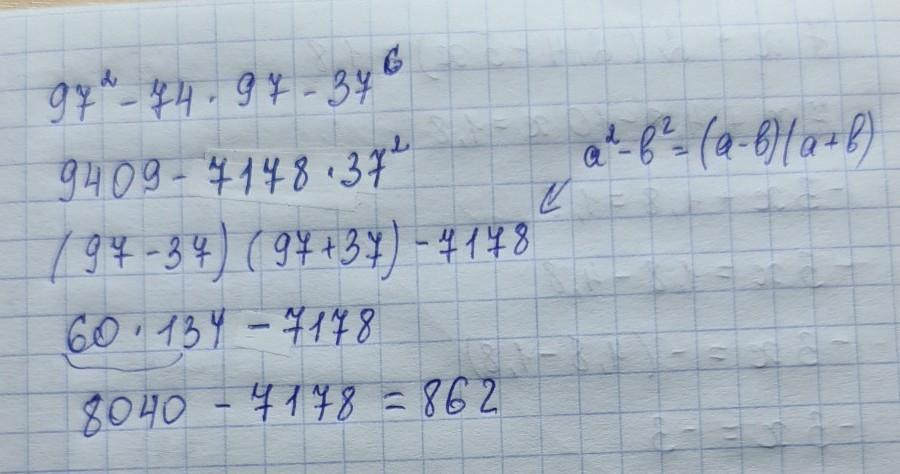 97² - 74 · 97 - 37⁶
9409 - 7178 · 37²
a² - b² = (a - b)(a + b)
(97 - 37) (97 + 37) - 7178
60 · 134 - 7178
8040 - 7178 = 862